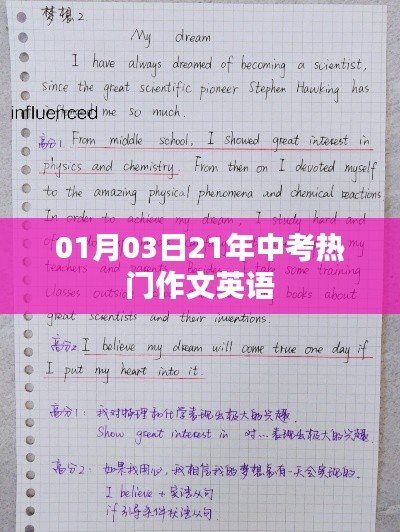 梦想2
My dream
I have always dreamed of becoming a scientist,
since the great scientific pioneer Stephen Hawking has
influenced me so much.
高分1 From middle school, I showed great interest in
physics and chemistry. From then on I devoted myself
to the amazing physical phenomena and chemical reactions
In order to achieve my dream, I study hard and
01月03日21年中考热
门作文英语
my teachers and parents. Besides, I take some training
classes outside
their great scientists.
高分2 I believe my dream will come true one day if
I put my heart into it.
高分1: 我对物理和化学表现出极大的兴趣.
Show great interest in 对…表现出极大的兴趣
高分2: 如果我用心,我相信我的梦想会有一天会实现的.
I believe + 宾语从句
if 引导条件状语从句